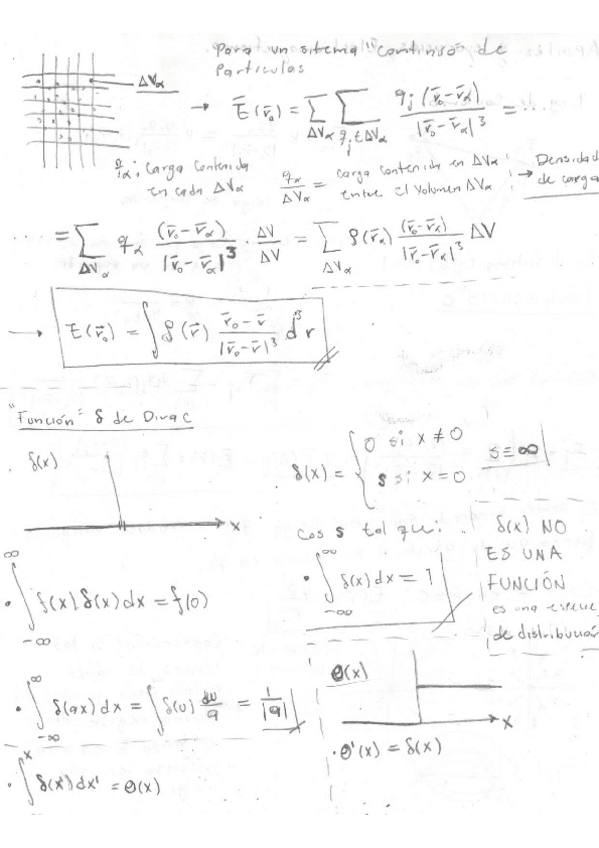 Para un sistema "continuo" de
Particulas
ΔVα
→ E̅(r̅₀) = ∑_ΔVα ∑_{qᵢ∈ΔVα} qᵢ (r̅₀-r̅α) / |r̅₀-r̅α|³ = ...
qα: carga contenida
en cada ΔVα
qα/ΔVα = carga contenida en ΔVα
entre el volumen ΔVα
→ Densidad
de carga
... = ∑_ΔVα qα (r̅₀-r̅α)/|r̅₀-r̅α|³ ΔV/ΔV = ∑_ΔVα ρ(r̅α) (r̅₀-r̅α)/|r̅₀-r̅α|³ ΔV
→ E(r̅₀) = ∫ ρ(r̅) (r̅₀-r̅)/|r̅₀-r̅|³ d³r
"Función" δ de Dirac
· δ(x)
x
δ(x) = { 0 si x ≠ 0
s si x = 0
s = ∞
Cos s tal que:
· ∫_{-∞}^{∞} δ(x) dx = 1
δ(x) NO
ES UNA
FUNCIÓN
es una especie
de distribución
· ∫_{-∞}^{∞} f(x) δ(x) dx = f(0)
· ∫_{-∞}^{∞} δ(ax) dx = ∫ δ(u) du/a = 1/|a|
θ(x)
x
· θ'(x) = δ(x)
· ∫^{x} δ(x') dx' = θ(x)